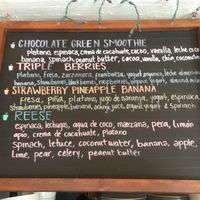 CHOCOLATE GREEN SMOOTHIE
platano, espinaca, crema de cacahuate, cacao, vanilla, leche coco
banana, spinach, peanut butter, cacao, vanilla, chia coconut
TRIPLE BERRIES
platano, fresa, zarzamora, frambuesa, yogurt organico, leche almendra
banana, strawberries, blackberries, raspberries, organic yogurt, almond milk
STRAWBERRY PINEAPPLE BANANA
fresa, piña, platano, jugo de naranja, yogurt, espinaca
strawberries, pineapple, banana, orange juice, organic yogurt & spinach
REESE
espinaca, lechuga, agua de coco, manzana, pera, limón
apio, crema de cacahuate, platano
spinach, letuce, coconut water, banana, apple,
lime, pear, celery, peanut butter